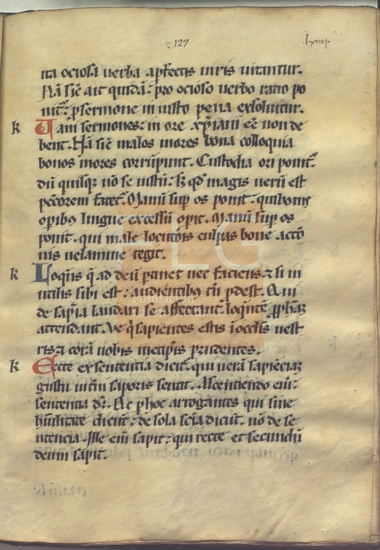 127
ita ociosa verba a pfectis uiris uitantur.
Nā sic̄ ait quidā: pro ocioso verbo ratio po
nit͛: p sermone iniusto pena exsoluitur.
k Uani sermones: in ore xp̄iani eē non de
bent. Nā sic̄ malos mores bona colloquia
bonos mores corrumpunt. Custodia ori ponit͛.
dū quisque nō se iustū: sꝫ qđ magis verū est
pctōrem fatet͛. Manū sup os ponit: qui bonis
opibus lingue excessū opit. Manū sup os
ponit. qui male locutionis culpas bone acctō
nis uelamine tegit.
k Loquēs q̄ ad deū ptinet nec faciens: & si in
utilis sibi est: audientibus tn̄ pdest.
de sapīa laudari se affectant. loquēte pphā
attendant. Ve q̄ sapientes estis ī oculis vest
ris: & corā uobis metipsis prudentes.
k Recte ex sententia dicit͛. qui verā sapiēciā
gustu intīmi saporis sentit. A sentiendo enī:
sententia dr̄. Ac p hoc arrogantes qui sine
humilitate dicunt: de sola sciā dicūt. nō de se
ntencia. Ille enī sapit: qui recte et secundū
deum sapit.